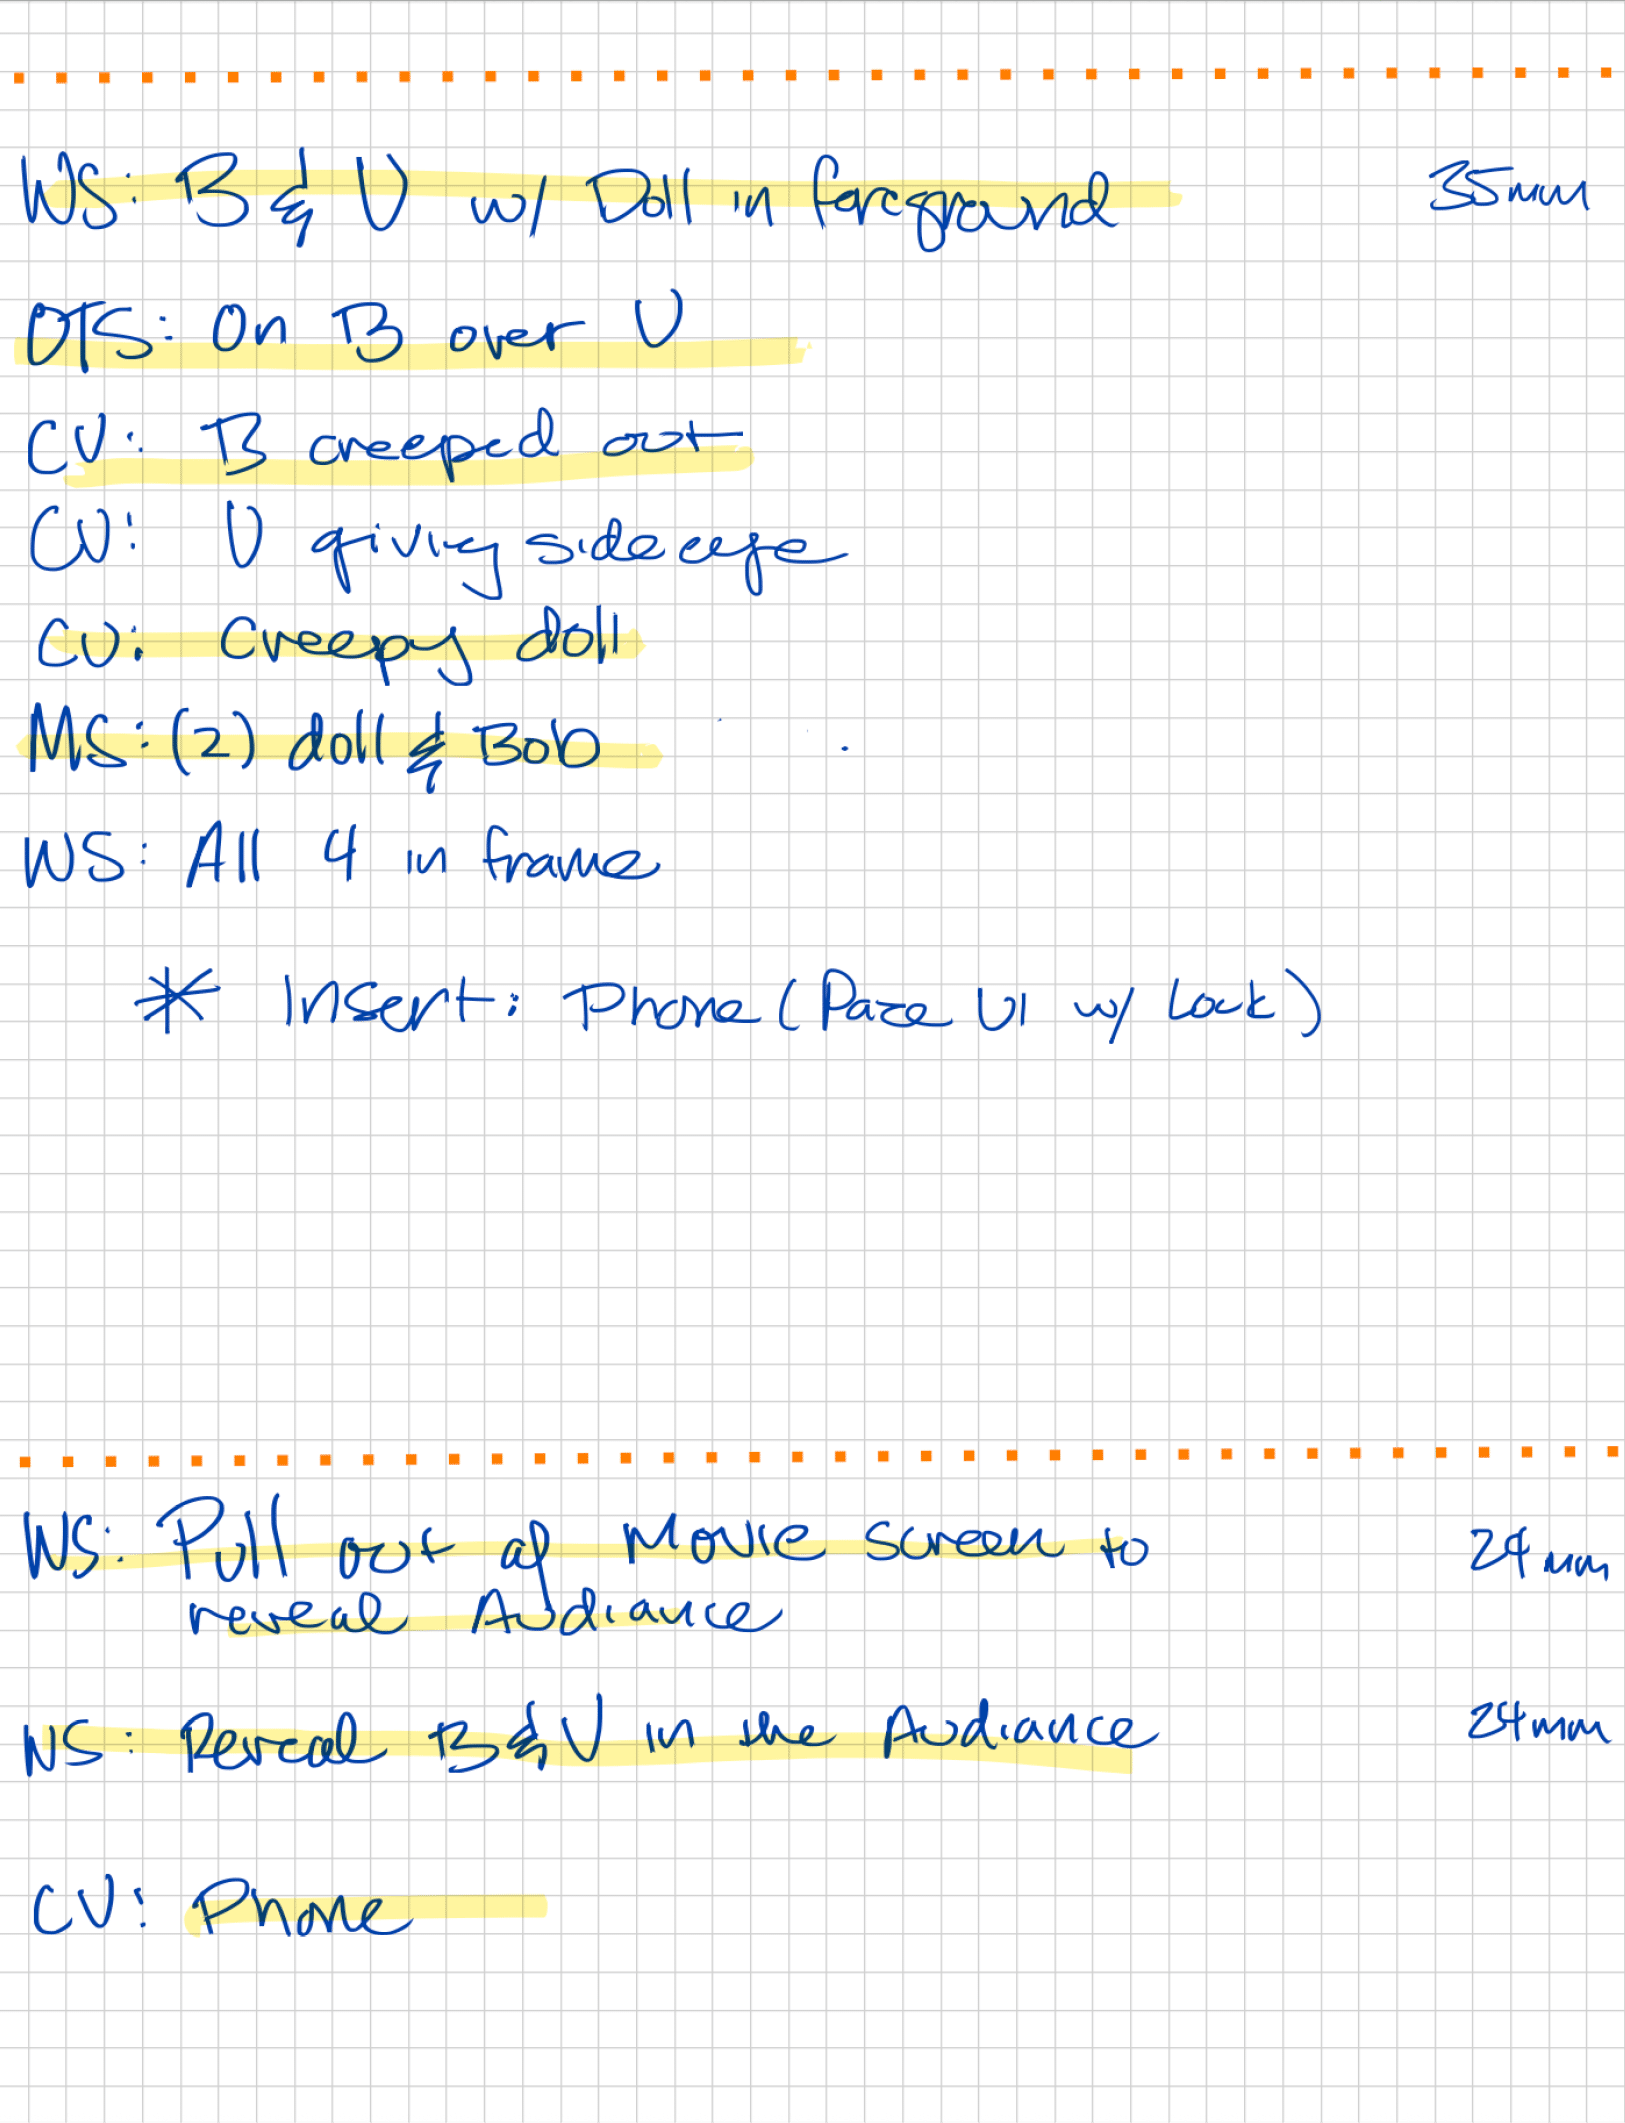 WS: B & V w/ Doll in foreground 35mm
OTS: On B over V
CU: B creeped out
CU: V giving side eye
CU: Creepy doll
MS: (2) doll & Bob
WS: All 4 in frame
* Insert: Phone (Paze UI w/ Lock)
WS: Pull out of Movie Screen to 24mm
reveal Audiance
WS: Reveal B & V in the Audiance 24mm
CU: Phone